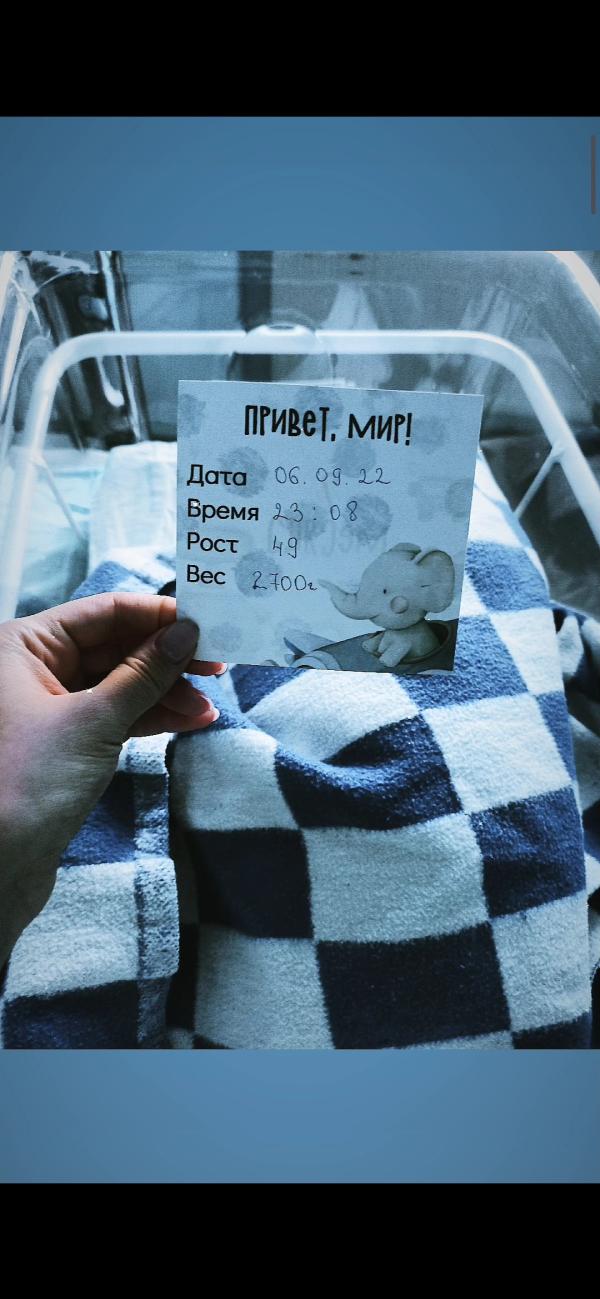 ПРИВЕТ, МИР!
Дата 06.09.22
Время 23:08
Рост 49
Вес 2700г